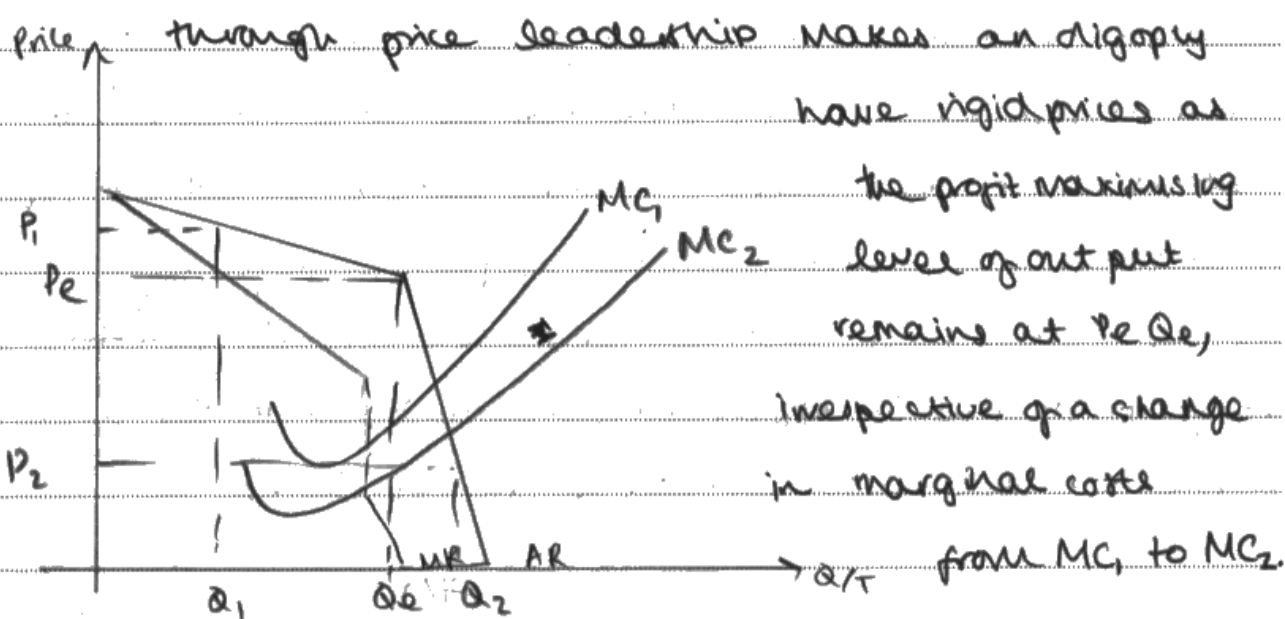 Price through price leadership makes an oligoply
have rigid prices as
the profit maximising
P₁ MC₁
level of out put
Pe MC₂
remains at Pe Qe,
irrespective of a change
P₂
in marginal costs
from MC₁ to MC₂.
MR AR Q/T
Q₁ Qe Q₂